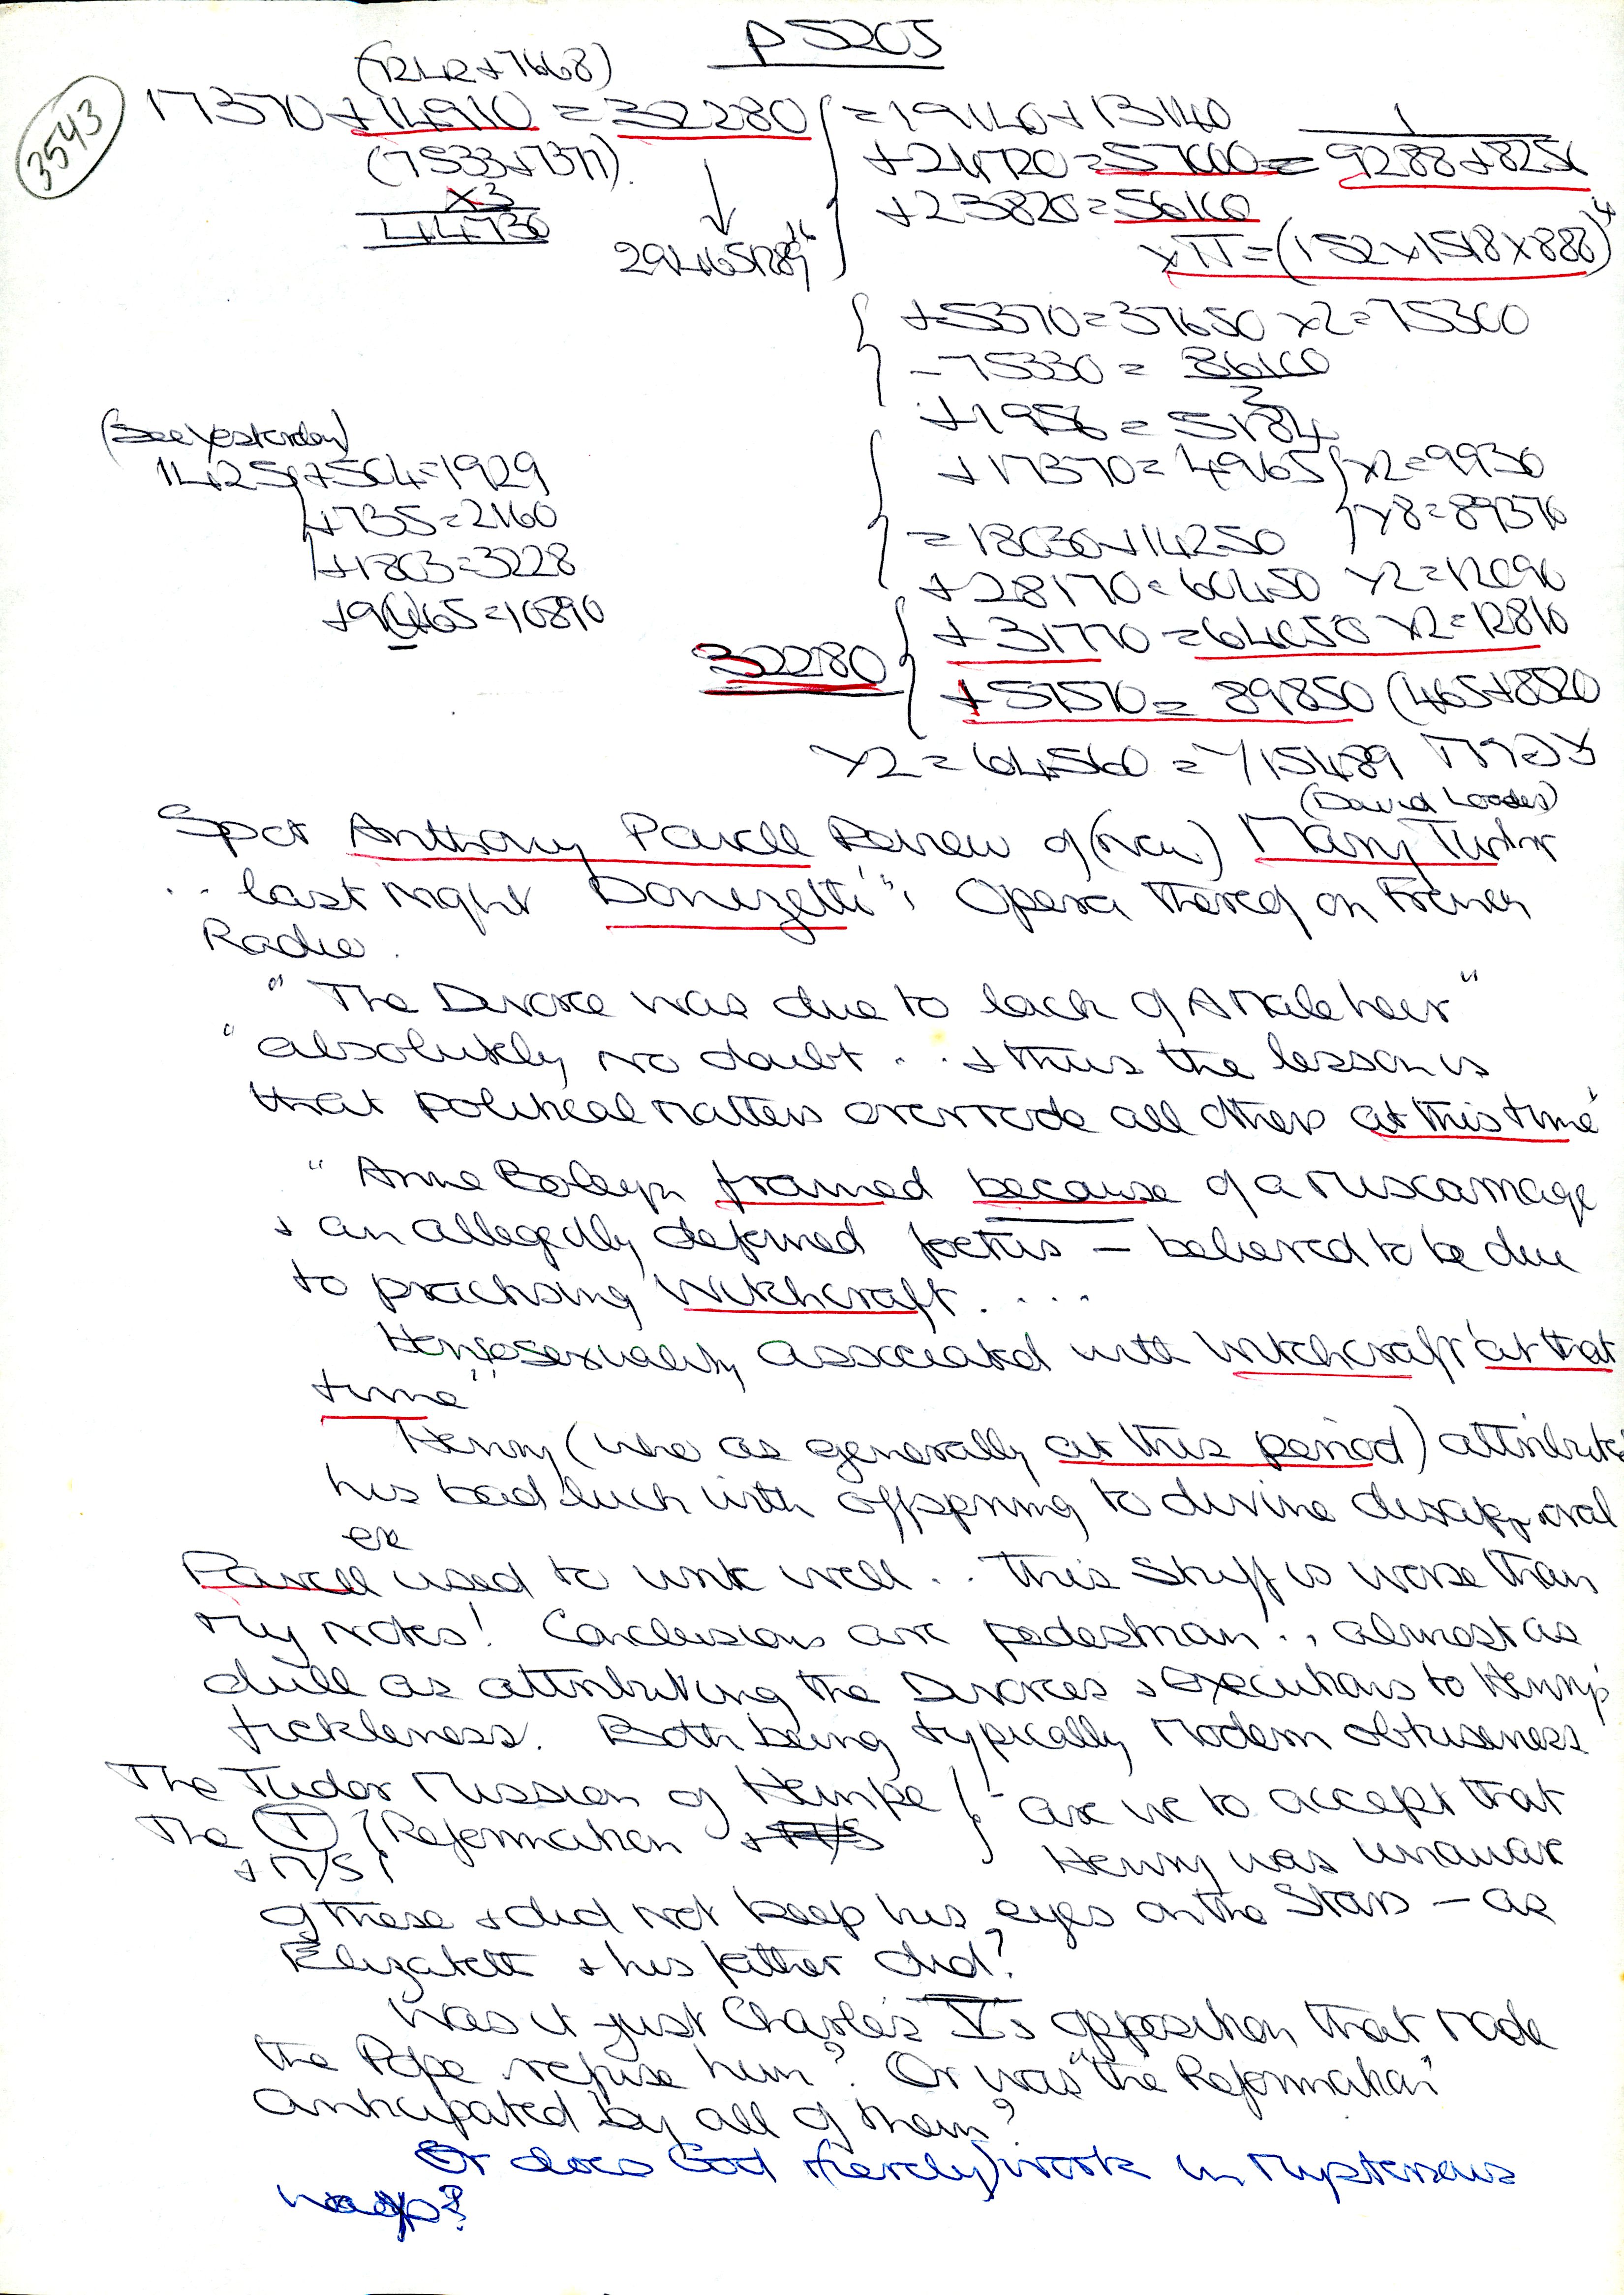 p 5205
3543
(7242+7668)
17370+14910 = 32280
(7533+7377)
x3
44730
2944651289
= 19140+13140
+24720=57000= 9288+8256
+23820=56100
xπ=(152x1518x888)
+5370=37650 x2=75300
-75330=
+1956 = 5184
+17370= 4965 x2=9930
x8=89370
= 18030+14250
+28170=60450 x2=12090
+31770 =64050 x2=12810
32280
+57570 = 89850 (465+8520
x2 = 64560 =
(See Yesterday)
1425+504=1929
+735=2160
+1803=3228
+9465=10890
(David Loades)
Spct Anthony Powell Review of (new) Mary Tudor
.. last night Donizetti's Opera thereof on French
Radio.
"The Divorce was due to lack of A Male heir"
"absolutely no doubt ... + thus the lesson is
that political matters overrode all others at this time"
"Anne Boleyn framed because of a miscarriage
+ an allegedly deformed foetus — believed to be due
to practising Witchcraft. ....
Homosexuality associated with Witchcraft "at that
time"
Henry (who as generally at this period) attributed
his bad luck with offspring to divine disapproval
Powell used to write well.. This Stuff is worse than
my notes! Conclusions are pedestrian.. almost as
dull as attributing the Divorces + executions to Henry's
fickleness. Both being typically Modern obtuseness
The Tudor Mission of
The (T) Reformation
+ M/S
} - are we to accept that
Henry was unaware
of these + did not keep his eyes on the Stars — as
Elizabeth + his father did?
Was it just Charles V's opposition that made
the Pope refuse him? Or was "the Reformation"
anticipated by all of them?
Or does God (merely) work in mysterious
ways?